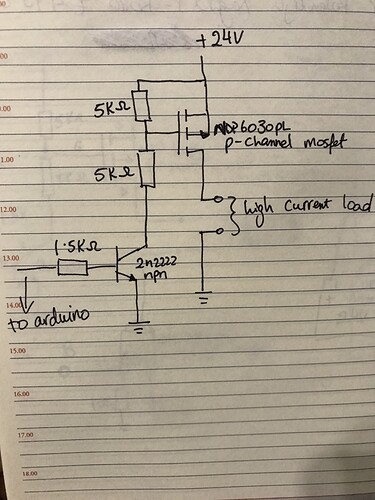 +24V
5KΩ
NDP6030PL
p-channel mosfet
5KΩ
high current load
1.5KΩ
2n2222
npn
to arduino
9.00
11.00
12.00
13.00
14.00
15.00
16.00
17.00
18.00